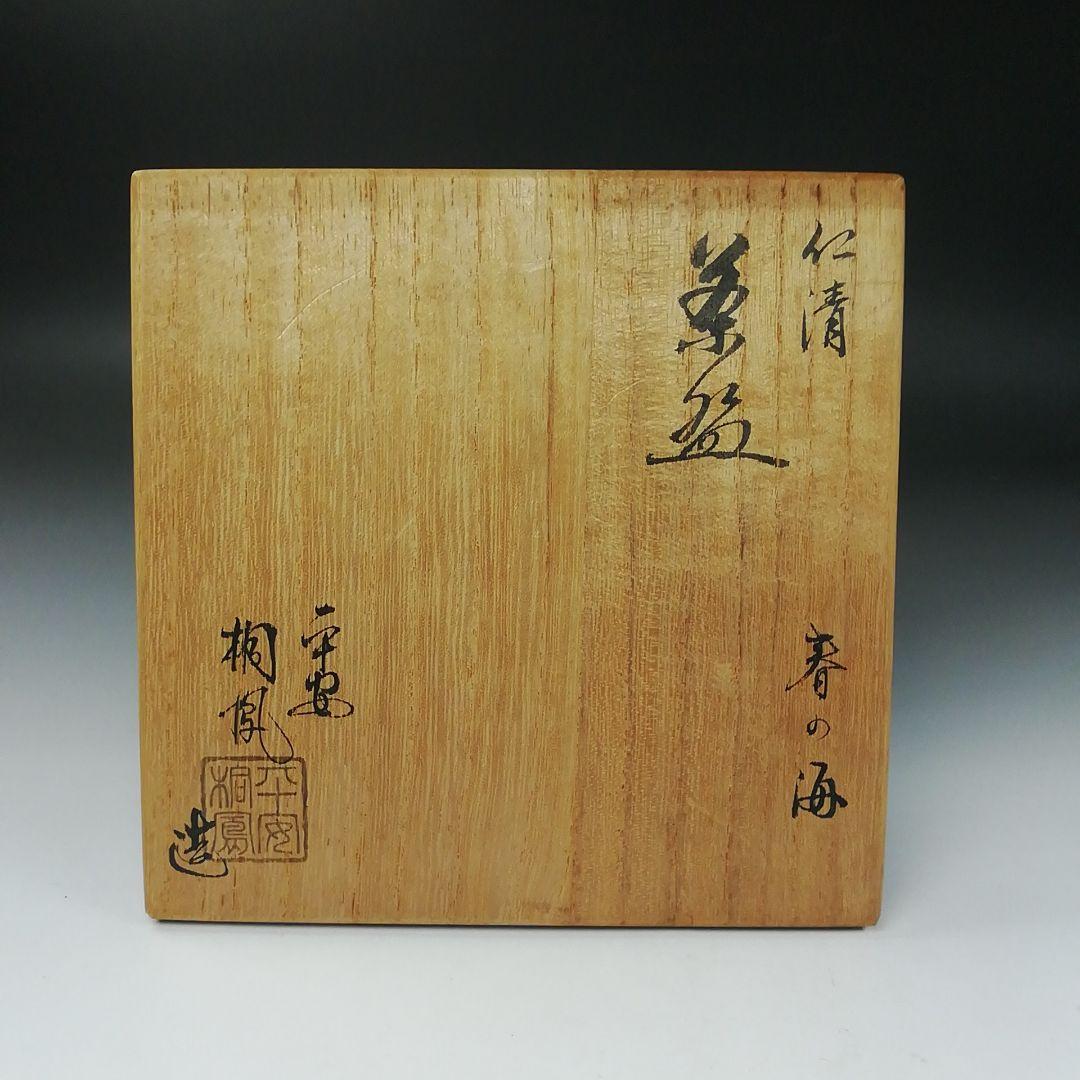 仁清
茶盌
春の海
平安
桐鳳
造
平安
桐鳳